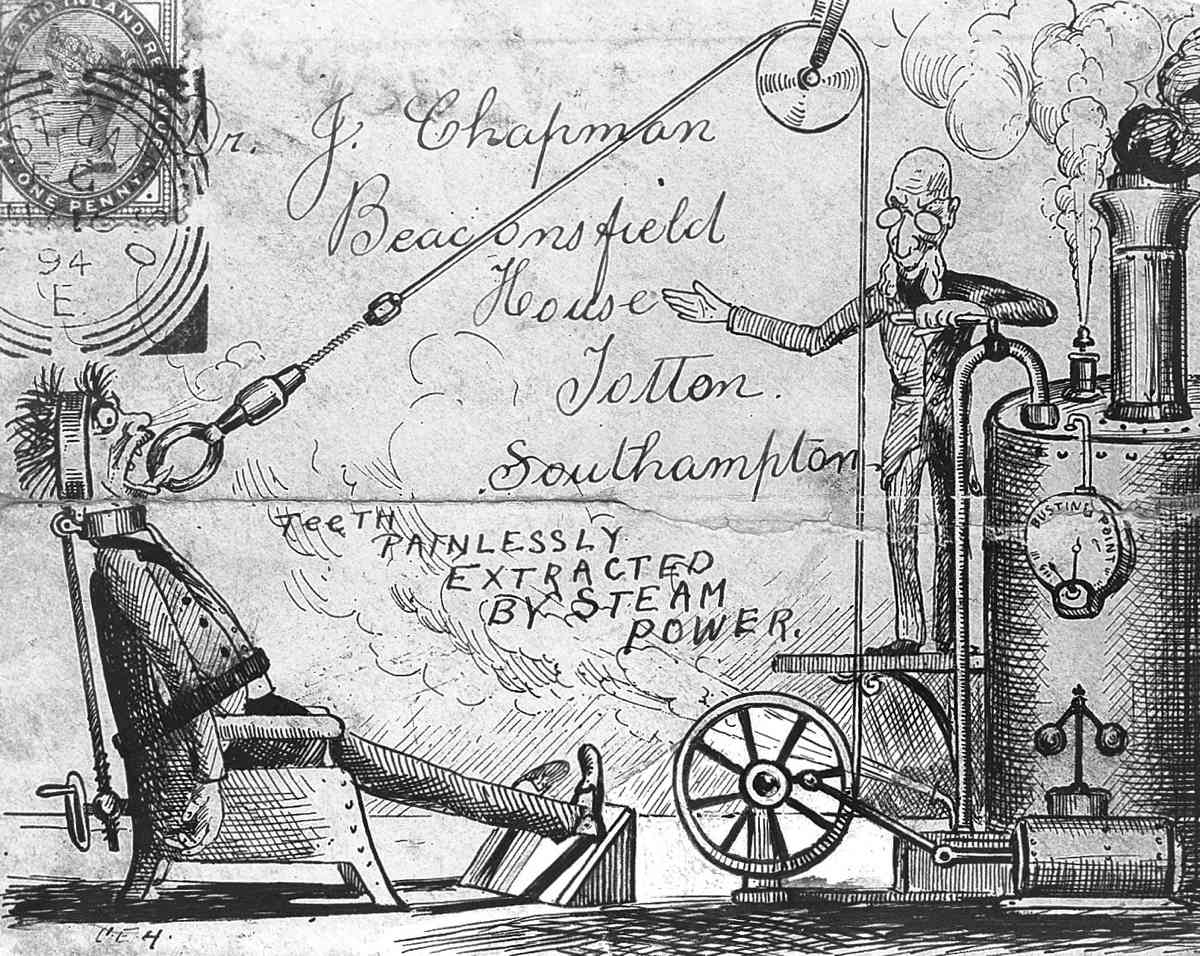 ONE PENNY
94
E.
Dr. J. Chapman
Beaconsfield
House
Totton.
Southampton.
TeeTH
PAINLESSLY
EXTRACTED
BY STEAM
POWER.
BUSTING POINT
C.E.H.